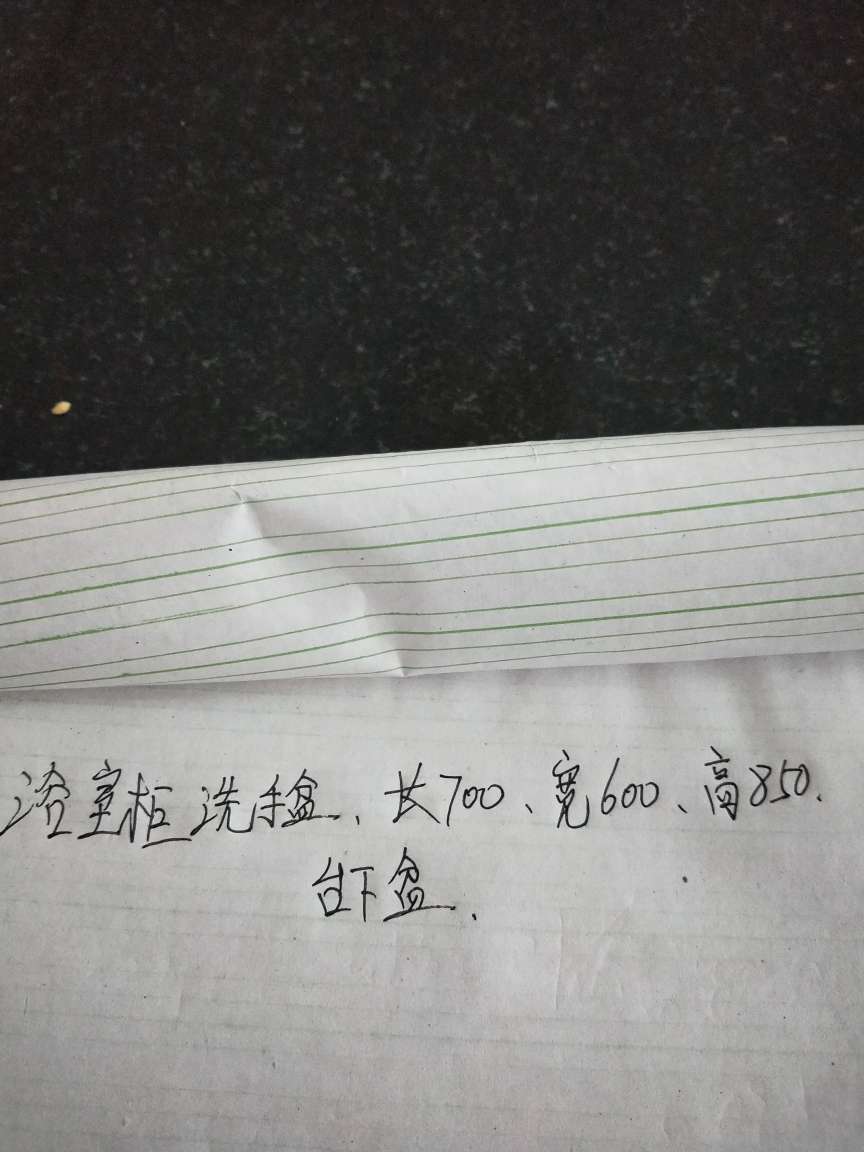 浴室柜洗手盆、长700、宽600、高850.
台下盆.